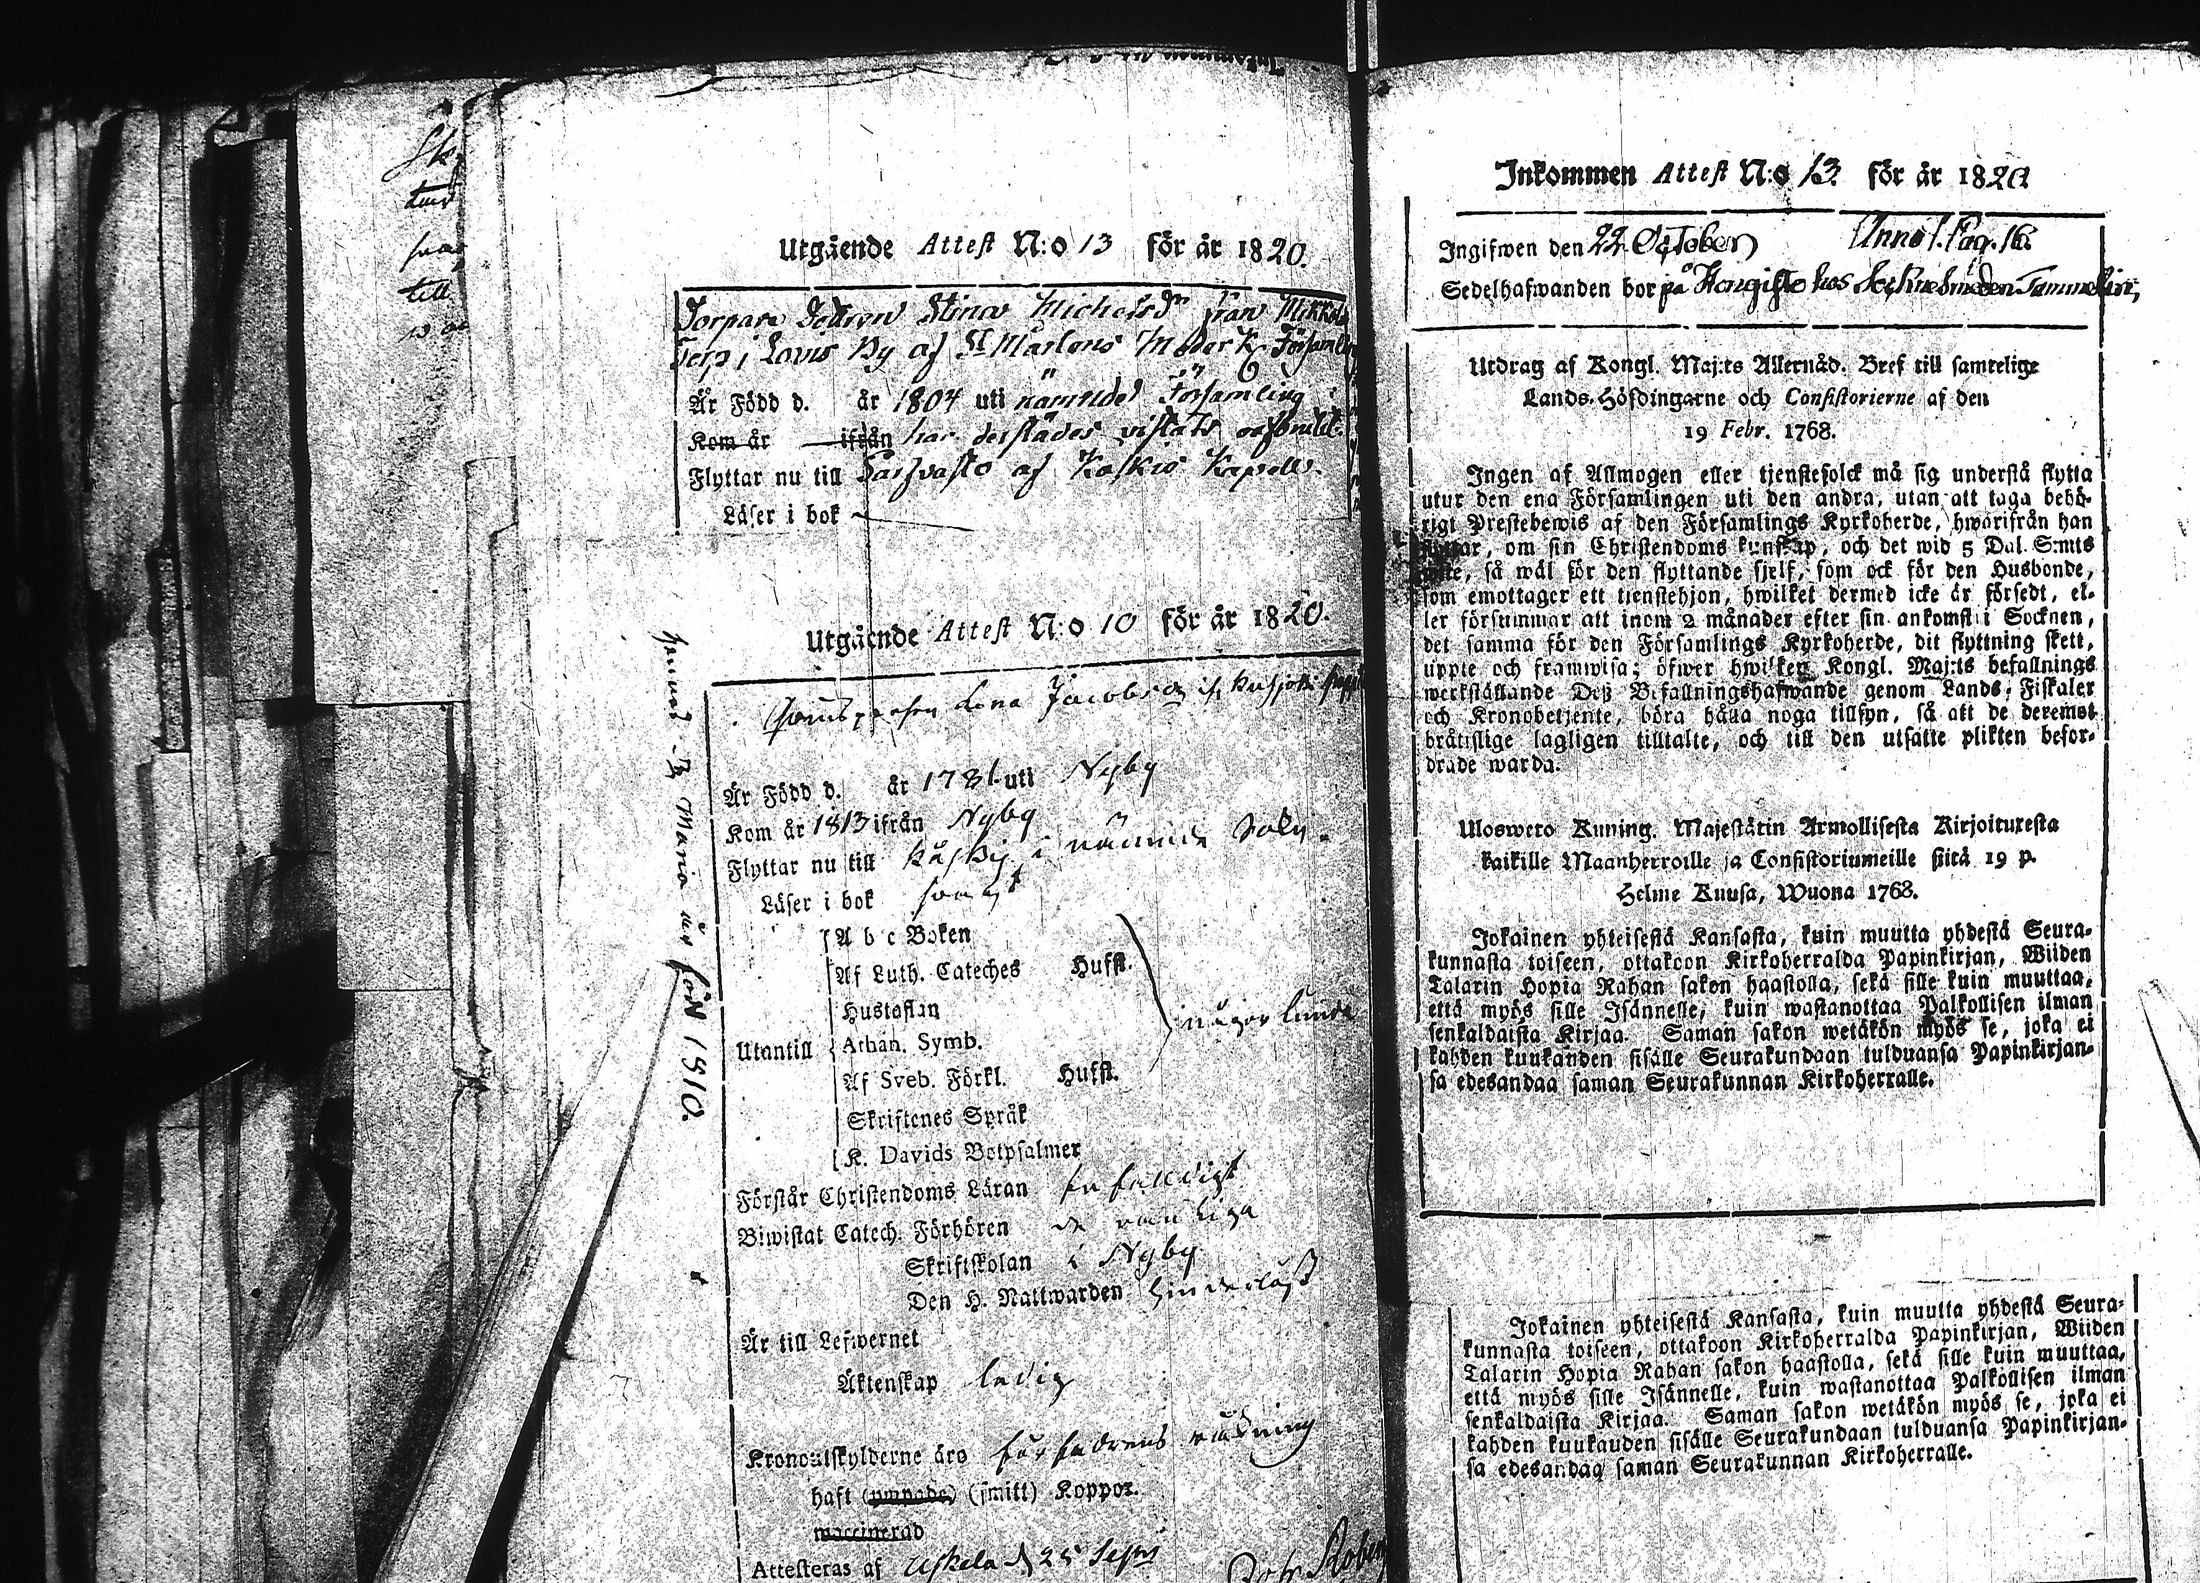 Utgående Attest N:o 13 för år 1820.
Torpare Dottren Stina Michelsdr från Mikkola
Torp i Lovis By af St Mårtens Moder K. Församling
Är Född d. år 1804 uti nämnde Församling
Kom år ifrån har derstädes vistats
Flyttar nu till af Koskis Kapell.
Läser i bok
Utgående Attest N:o 10 för år 1820.
Lena Jacobsd
Är Född d. år 1781 uti Nyby
Kom år 1813 ifrån Nyby
Flyttar nu till i nämnde Sokn.
Läser i bok svagt
A b c Boken
Af Luth. Cateches Hufst.
Hustaflan
Utantill Athan. Symb.
någorlunda
Af Sveb. Förkl. Hufst.
Skriftenes Språk
K. Davids Botpsalmer
Förstår Christendoms Läran enfaldigt
Biwistat Catech. Förhören de vanliga
Skriftskolan i Nyby
Den H. Nattwarden
Är till Lefwernet
Äktenskap ledig
Kronoutskylderne äro för fadrens räkning
haft (ympade) (smitt) Koppor.
waccinerad
Attesteras af Uskela d 25 Sept
Maria är född 1810.
Inkommen Attest N:o 13. för år 1820
Ingifwen den 22 October Anno 1. Pag. 16.
Sedelhafwanden bor på Hengisto hos
Utdrag af Kongl. Maj:ts Allernåd. Bref till samtelige
Lands-Höfdingarne och Consistorierne af den
19 Febr. 1768.
Ingen af Allmogen eller tjenstefolck må sig understå flytta
utur den ena Församlingen uti den andra, utan att taga behö-
rigt Prestebewis af den Församlings Kyrkoherde, hwarifrån han
flyttar, om sin Christendoms kunskap, och det wid 5 Dal. S:mts
wite, så wäl för den flyttande sjelf, som ock för den Husbonde,
som emottager ett tjenstehjon, hwilket dermed icke är försedt, el-
ler försummar att inom 2 månader efter sin ankomst i Socknen,
det samma för den Församlings Kyrkoherde, dit flyttning skett,
uppte och framwisa; öfwer hwilket Kongl. Maj:ts befallnings
werkställande Deß Befallningshafwande genom Lands-Fiskaler
och Kronobetjente, böra hålla noga tillsyn, så att de deremot
bråttslige lagligen tilltalte, och till den utsatte plikten befor-
drade warda.
Uloswero Kuning. Majestätin Armollisesta Kirjoituxesta
kaikille Maanherroille ja Consistoriumeille siitä 19 p.
Helme Kuusa, Wuona 1768.
Jokainen yhteisestä Kansasta, kuin muutta yhdestä Seura-
kunnasta toiseen, ottakoon Kirkoherralda Papinkirjan, Wiiden
Talarin Hopia Rahan sakon haastolla, sekä sille kuin muuttaa,
että myös sille Isännelle, kuin wastanottaa Palkollisen ilman
senkaldaista Kirjaa. Saman sakon wetäkön myös se, joka ei
kahden kuukauden sisälle Seurakundaan tulduansa Papinkirjan-
sa edesandaa saman Seurakunnan Kirkoherralle.
Jokainen yhteisestä Kansasta, kuin muutta yhdestä Seura-
kunnasta toiseen, ottakoon Kirkoherralda Papinkirjan, Wiiden
Talarin Hopia Rahan sakon haastolla, sekä sille kuin muuttaa,
että myös sille Isännelle, kuin wastanottaa Palkollisen ilman
senkaldaista Kirjaa. Saman sakon wetäkön myös se, joka ei
kahden kuukauden sisälle Seurakundaan tulduansa Papinkirjan-
sa edesandaa saman Seurakunnan Kirkoherralle.